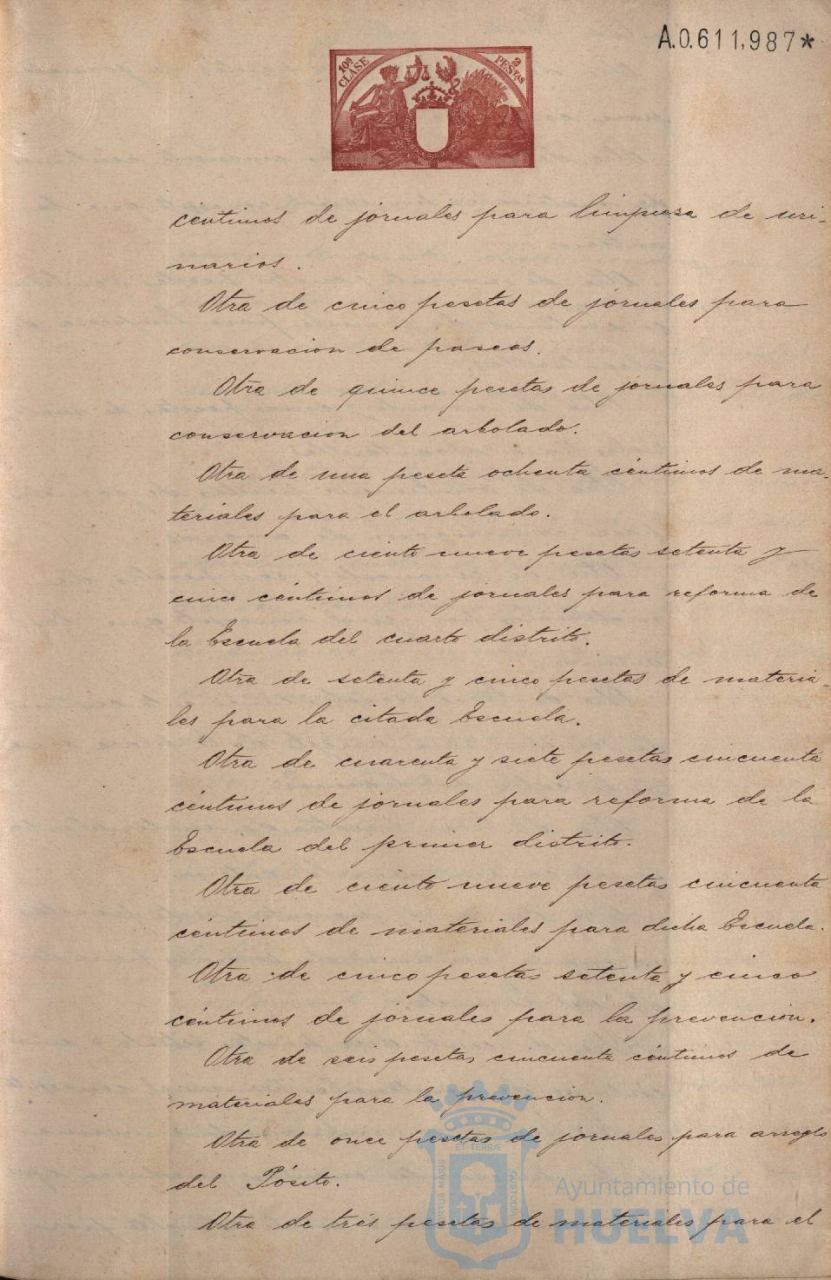 A.0.611,987*
10ª CLASE
2 PESTAS
céntimos de jornales para limpieza de uri-
narios.
Otra de cinco pesetas de jornales para
conservacion de paseos.
Otra de quince pesetas de jornales para
conservacion del arbolado.
Otra de una peseta ochenta céntimos de ma-
teriales para el arbolado.
Otra de ciento nueve pesetas setenta y
cinco céntimos de jornales para reforma de
la Escuela del cuarto distrito.
Otra de setenta y cinco pesetas de materia-
les para la citada Escuela.
Otra de cuarenta y siete pesetas cincuenta
céntimos de jornales para reforma de la
Escuela del primer distrito.
Otra de ciento nueve pesetas cincuenta
céntimos de materiales para dicha Escuela.
Otra de cinco pesetas setenta y cinco
céntimos de jornales para la prevención.
Otra de seis pesetas cincuenta céntimos de
materiales para la prevencion.
Otra de once pesetas de jornales para arreglo
del Pósito.
Otra de tres pesetas de materiales para el
Ayuntamiento de
HUELVA